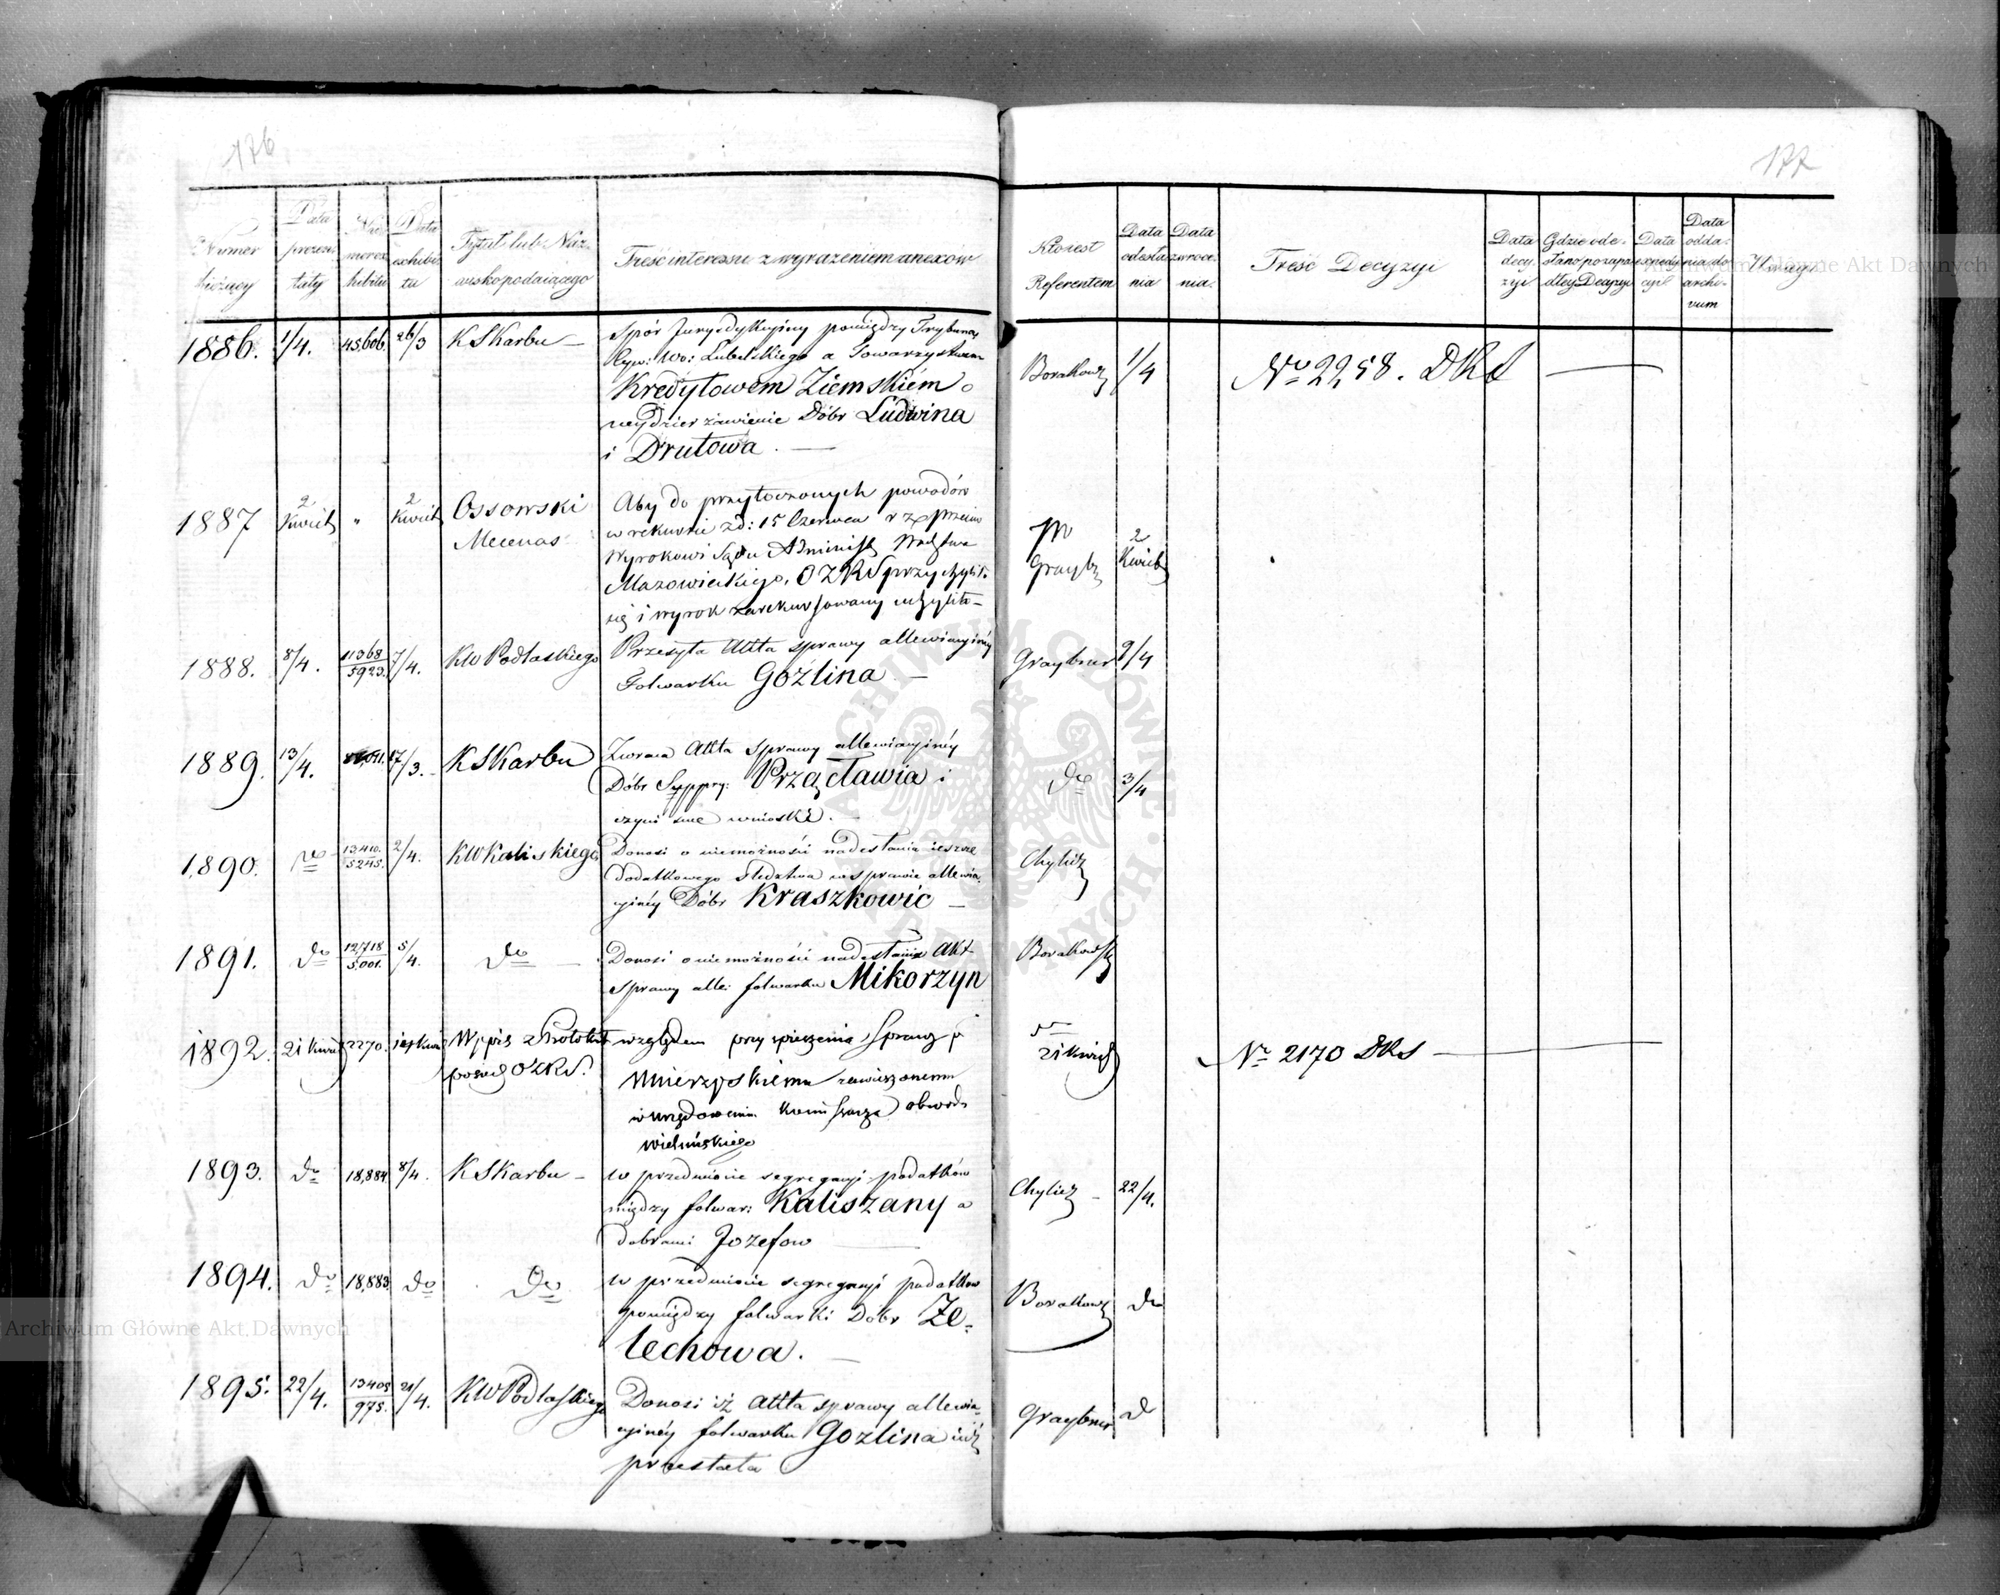 176
Numer bieżący
Data prezentaty
Numer exhibitu
Data exhibitu
Tytuł lub Nazwisko podającego
Treść interessu z wyrażeniem anexów
1886. 1/4. 45,606. 26/3 K Skarbu —
Spór Jurysdykcyjny pomiędzy Trybuna.
Cyw: Wo: Lubelskiego a Towarzystwem
Kredytowem Ziemskiém o
wydzierżawienie Dóbr Ludwina
i Drutowa. —
1887 2 Kwiet " 2 Kwiet Ossowski
Mecenas
Aby do przytoczonych powodów
w rekursie zd: 15 Czerwca r z przeciw
Wyrokowi Sądu Administ Wództwa
Mazowieckiego, OZRS przychylił
się i wyrok zarekursowany uchyliła—
1888. 8/4. 11368/5923. 7/4. KW Podlaskiego
Przesyła Akta sprawy allewiacyinéy
Folwarku Goźlina —
1889. 13/4. 17/3. K Skarbu
Zwraca Akta Sprawy allewiacyinéy
Dóbr Suppry: Przecławia i
czyni swe wnioski. —
1890. do 13410./5245. 2/4. KW Kaliskiego
Donosi o niemożności nadesłania ieszcze
dodatkowego śledztwa w sprawie allewia
cyinéy Dóbr Kraszkowic —
1891. do 12718/5,001. 5/4. do —
Donosi o niemożności nadesłania Akt
Sprawy alle: folwarku Mikorzyn
1892. 21 Kwiet 2270. Kwiet Wypis z Protokułu
posied OZRS.
względem przyspieszenia Sprawy p
Mnierzyskiemu zawieszonemu
w urzędowaniu Kommissarza obwodu
wieluńskiego
1893. do 18,884. 8/4. K Skarbu —
w przedmiocie segregacyi podatków
między folwar: Kaliszany a
dobrami Jozefow —
1894. do 18,883. do do
w przedmiocie segregacyi podatkow
pomiędzy folwarki Dóbr Że=
lechowa. —
1895. 22/4. 13405/975. 21/4. KW Podlaskiego
Donosi iż Akta sprawy allewia=
cyinéy folwarku Gozlina iuż
przesłała
177
Któren Referentem
Data odesłania
Data zwrócenia
Treść Decyzyi
Data decyzyi
Gdzie odesłano po zapadłey Decyzyi
Data expedycyi
Data oddania do archivum
Uwagi
Borakows 1/4 No 22,58. DRS —
Graybn 2 Kwiet
Graybner 9/4
do 3/4
Chylicz
Borakowski
do 21 Kwiet No 2170 DRS —
Chylicz — 22/4.
Borakows do
Graybner d
Archiwum Główne Akt Dawnych
Archiwum Główne Akt Dawnych
ARCHIWUM GŁÓWNE AKT DAWNYCH